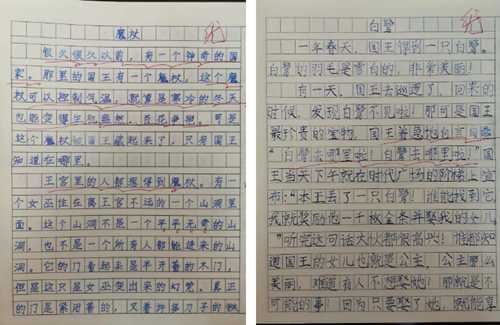 魔杖
很久很久以前，有一个神奇的国
家。那里的国王有一个魔杖，这个魔
杖可以控制气温，就算是寒冷的冬天
也能变得生机盎然，百花争艳。可是
这个魔杖被国王藏起来了，只有国王
知道在哪里。
王宫里的人都想得到魔杖。有一
个女巫住在离王宫不远的一个山洞里
面。这个山洞不是一个平平无奇的山
洞，也不是一个所有人都能进来的山
洞。它的门看起来是半开着的木门，
但是这只是女巫变出来的幻觉。真正
的门是紧闭着的，又看许多刀子的铁
白鹭
一年春天，国王得到一只白鹭。
白鹭的羽毛是雪白的，非常美丽！
有一天，国王去巡逻了，回来的
时候，发现白鹭不见啦！那可是国王
最珍贵的宝物，国王着急地自言自语
“白鹭去哪里啦！白鹭去哪里啦！”国
王当天下午就在时代广场的阶梯上宣
布：“本王丢了一只白鹭！谁能找到它
我就奖励他一千枚金条并娶我的女儿
”听完这句话大伙都很高兴！谁都知
道国王的女儿也就是公主，公主那么
美丽，难道有人不想娶她！那就是不
可能的事！因为只要娶了她，就能享